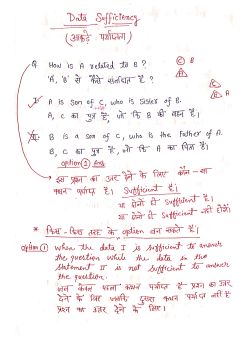 Data Sufficiency
(आकड़े पर्याप्तता)
Q. How is A related to B ?
'A', 'B' से कैसे संबंधित है ?
I. A is Son of C, who is Sister of B.
A, C का पुत्र है, जो कि B की बहन है।
II. B is a son of C, who is the Father of A.
B, C का पुत्र है, जो कि A का पिता है।
option ② Ans
इस प्रश्न का उत्तर देने के लिए कौन-सा
कथन पर्याप्त है। Sufficient है।
या दोनों ही Sufficient है।
या दोनों ही Sufficient नहीं होंगे।
* भिन्न-भिन्न तरह के option बन सकते हैं।
option ① When the data I is sufficient to answer
the question while the data in the
statement II is not sufficient to answer
the question.
केवल कथन पर्याप्त है प्रश्न का उत्तर
देने के लिए जबकि दूसरा कथन पर्याप्त नहीं है
प्रश्न का उत्तर देने के लिए।
C B
A